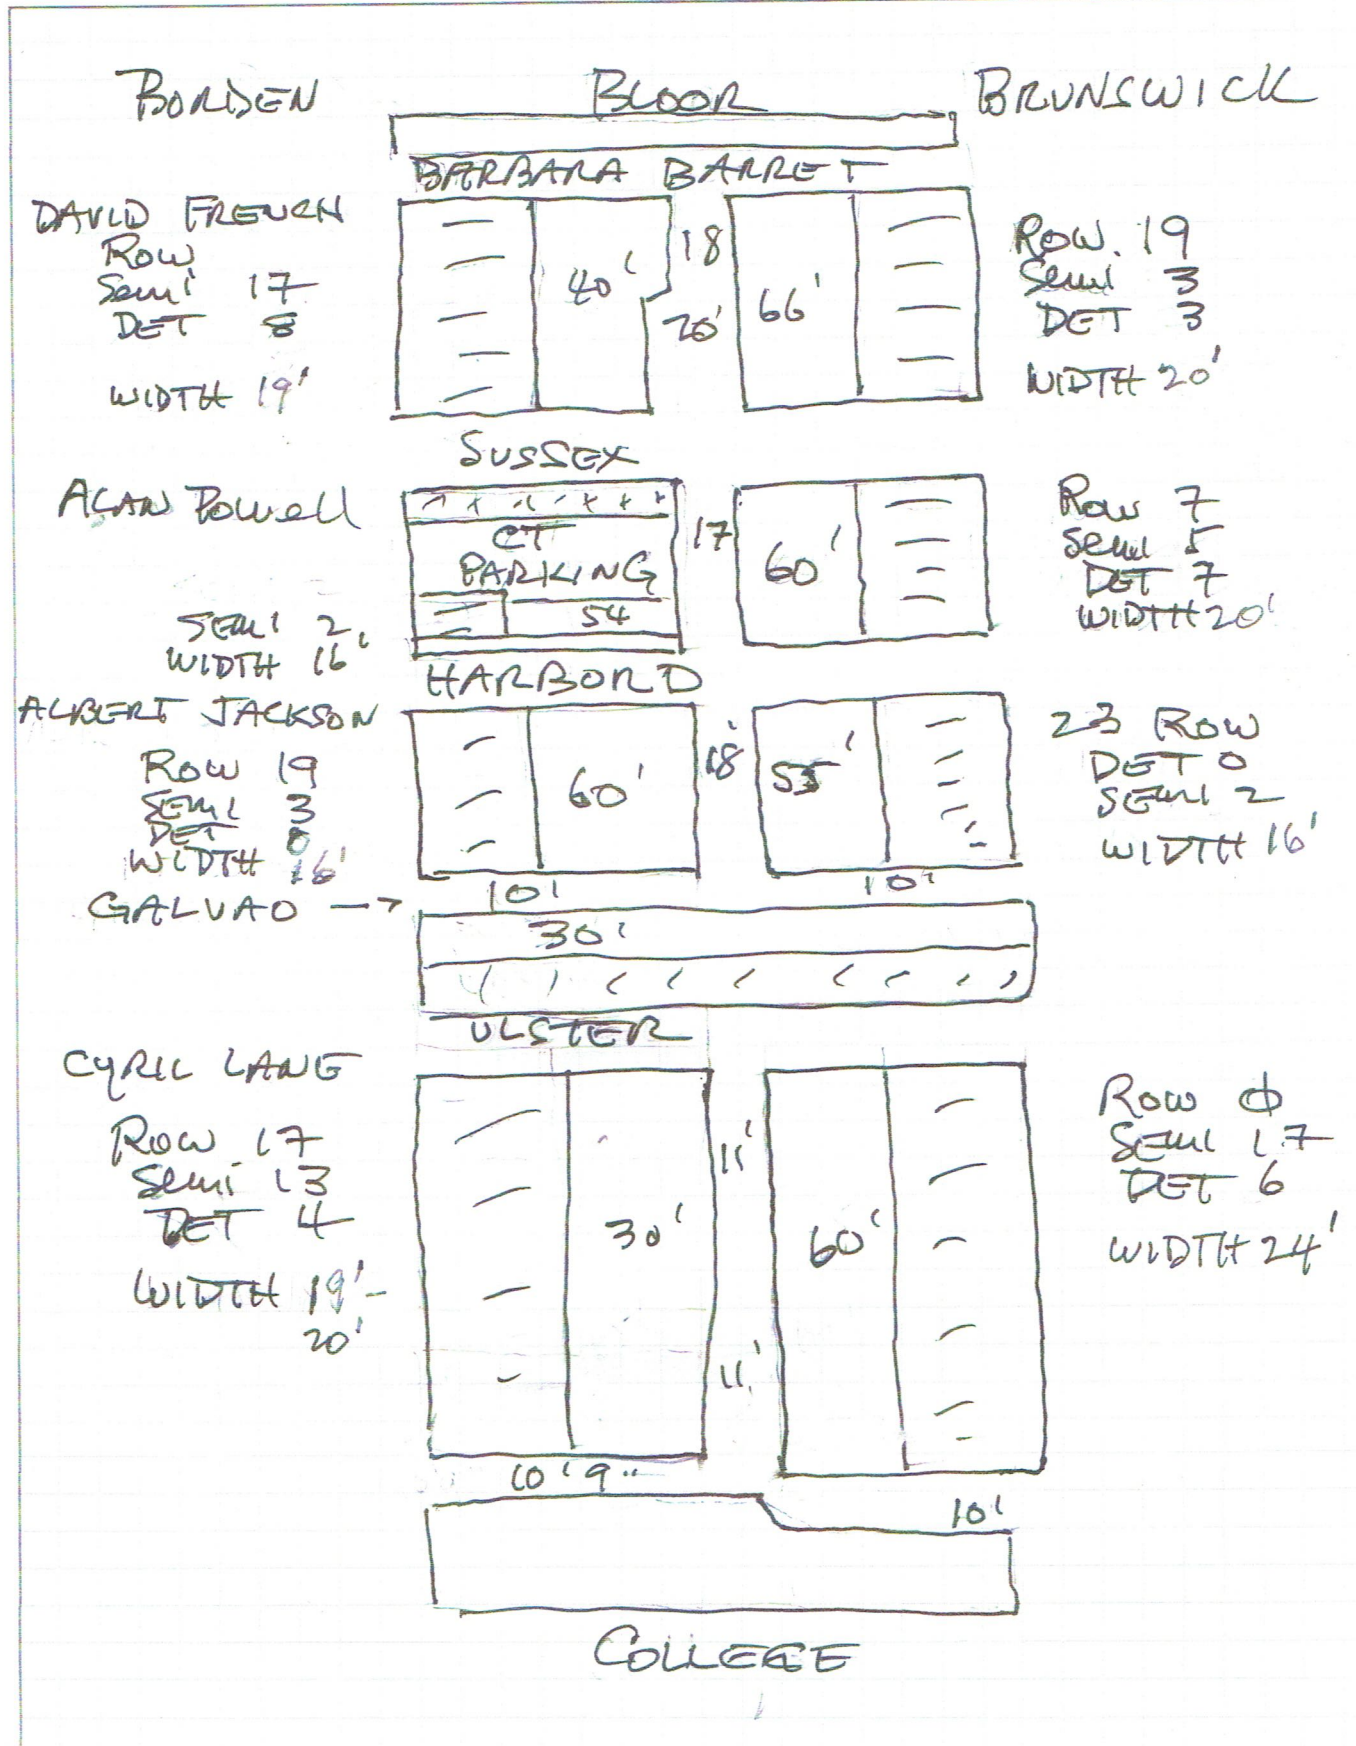 BORDEN BLOOR BRUNSWICK
BARBARA BARRET
DAVID FRENCH
ROW
Semi 17
DET 8
WIDTH 19'
40'
18
20'
66'
ROW. 19
Semi 3
DET 3
WIDTH 20'
SUSSEX
ALAN Powell
CT
PARKING
54
SEMI 2
WIDTH 16'
17
60'
Row 7
Semi 5
DET 7
WIDTH 20'
HARBORD
ALBERT JACKSON
ROW 19
SEMI 3
DET 0
WIDTH 16'
60'
18'
55'
23 ROW
DET 0
SEMI 2
WIDTH 16'
10'
10'
GALVAO →
30'
ULSTER
CYRIL LANE
ROW 17
Semi 13
DET 4
WIDTH 19'-
20'
30'
11'
11'
60'
ROW φ
SEMI 17
DET 6
WIDTH 24'
10'9"
10'
COLLEGE